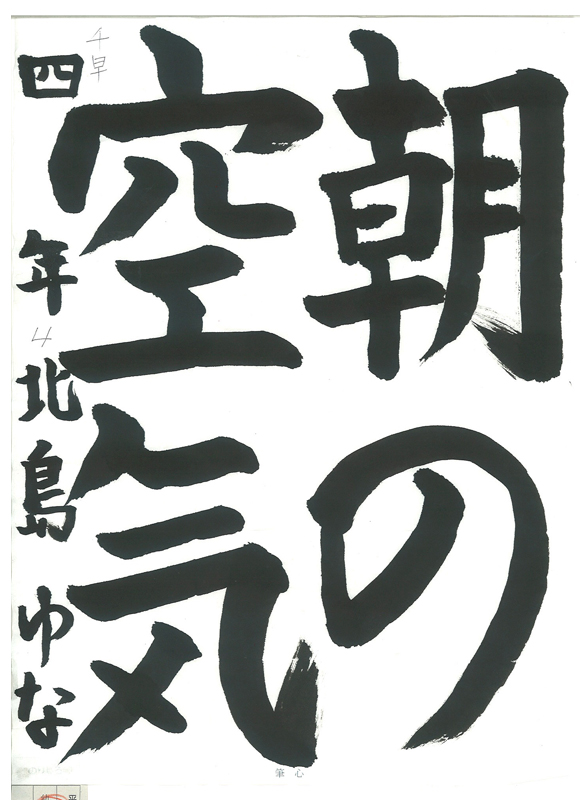 朝の
空気
四年 北島 ゆな
千早
4
筆心